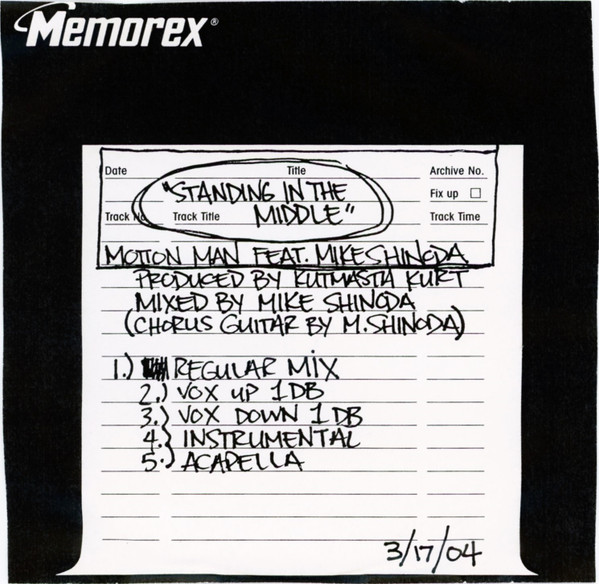 Memorex®
Date Title Archive No.
"STANDING IN THE
Fix up
MIDDLE"
Track No Track Title Track Time
MOTION MAN FEAT. MIKE SHINODA
PRODUCED BY KUTMASTA KURT
MIXED BY MIKE SHINODA
(CHORUS GUITAR BY M. SHINODA)
1.) REGULAR MIX
2.) VOX UP 1DB
3.) VOX DOWN 1DB
4.) INSTRUMENTAL
5.) ACAPELLA
3/17/04